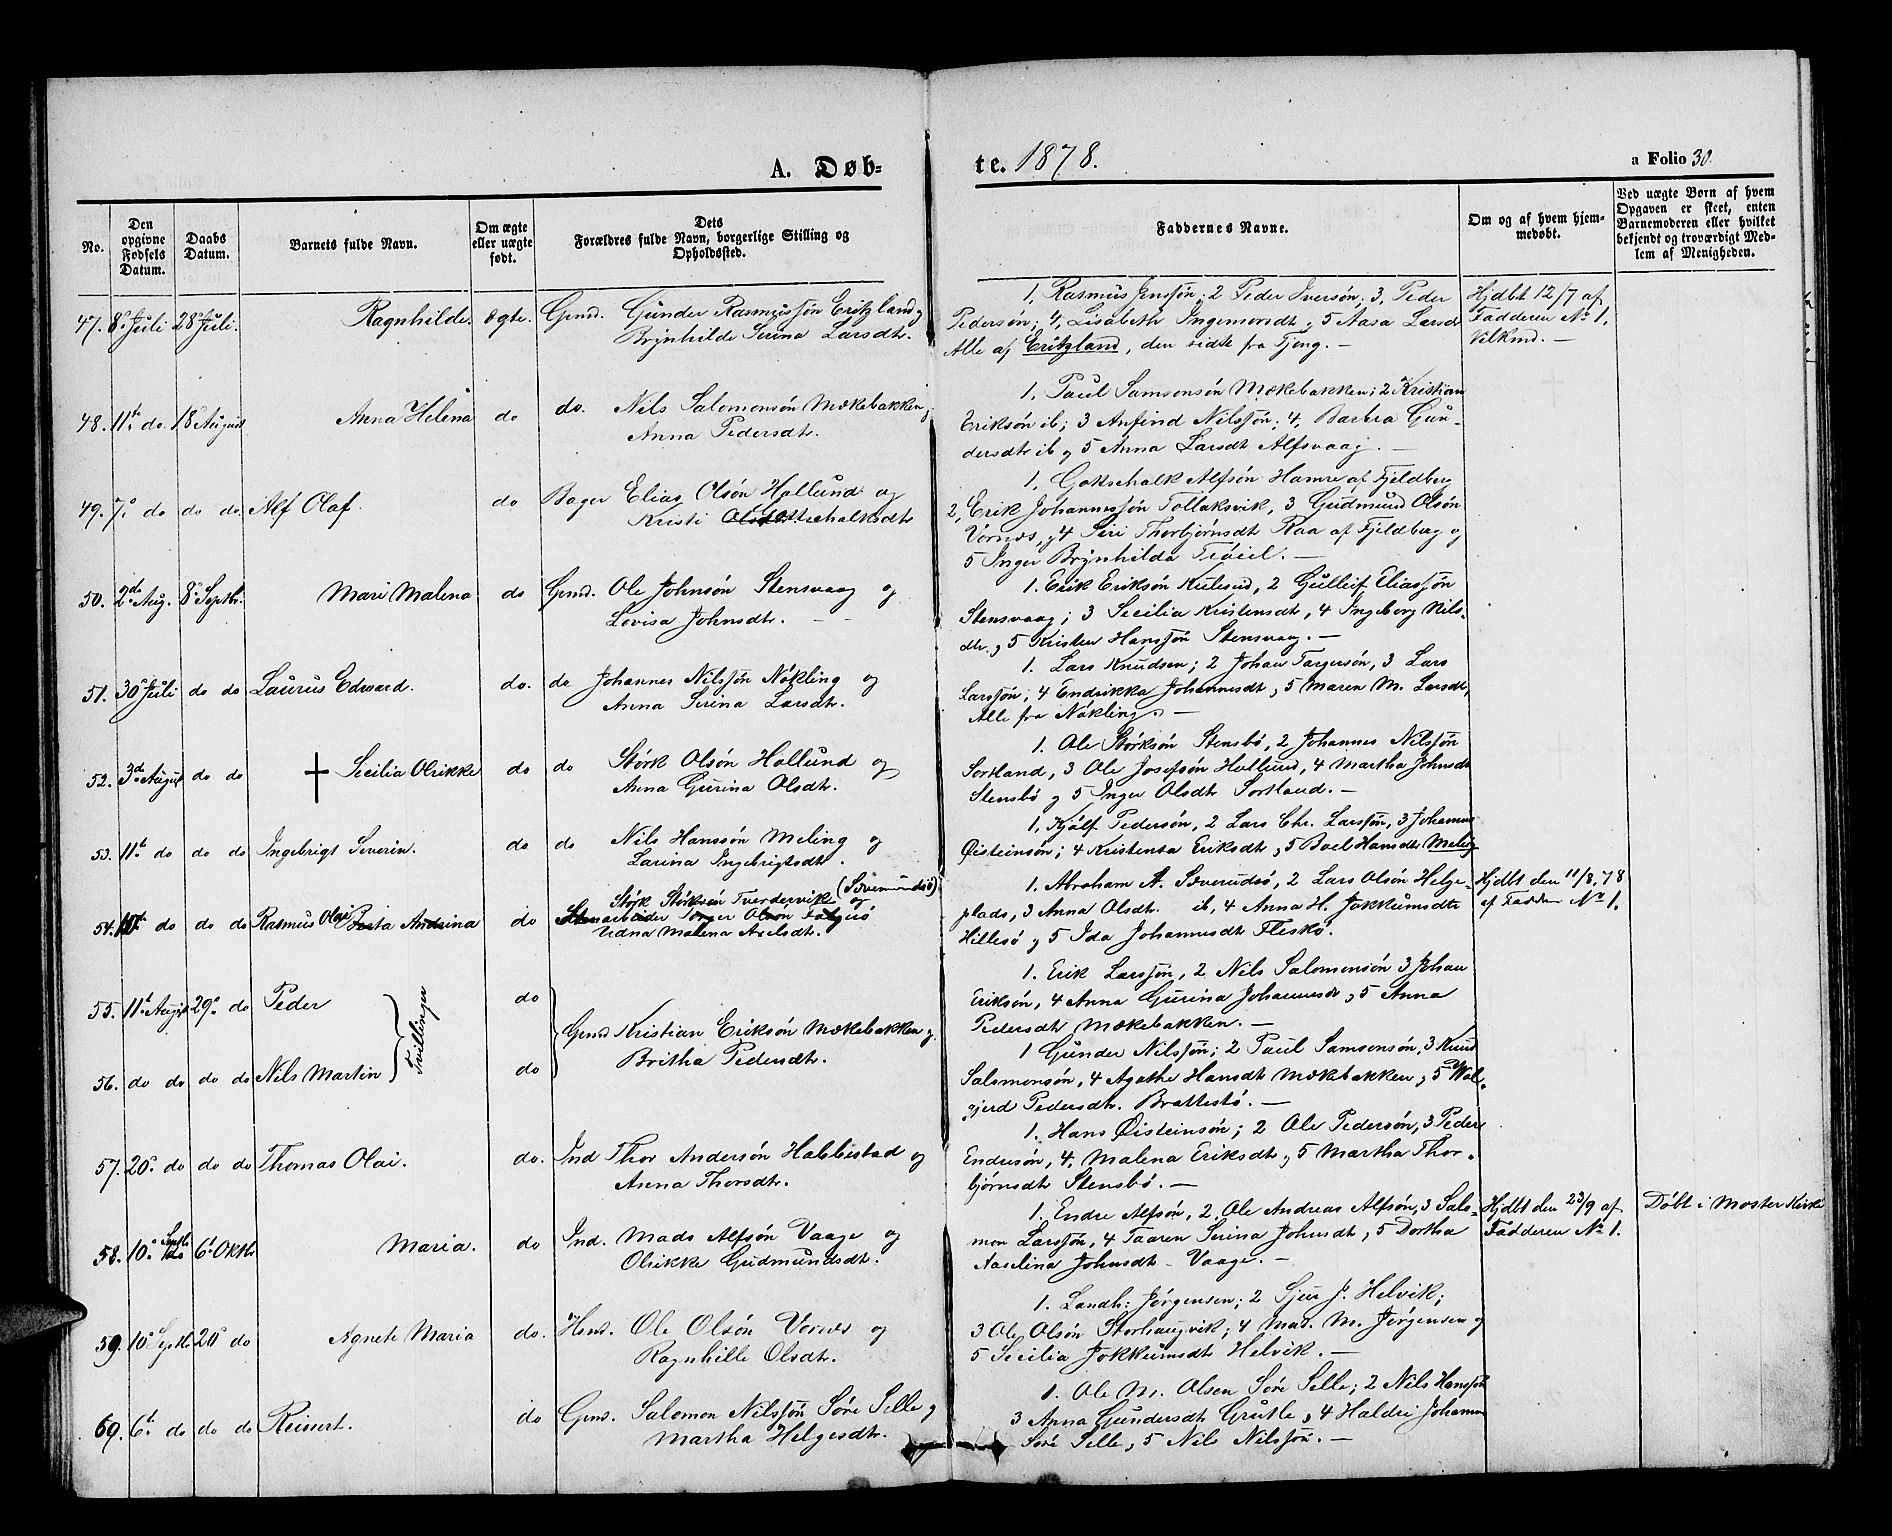 A. Døb-
te. 1878.
a Folio 30.
No.
Den opgivne Fødsels Datum.
Daabs Datum.
Barnets fulde Navn.
Om ægte eller uægte født.
Dets Forældres fulde Navn, borgerlige Stilling og Opholdssted.
Faddernes Navne.
Om og af hvem hjem-
medøbt.
Ved uægte Børn af hvem
Opgaven er skeet, enten
Barnemoderen eller hvilket
bekjendt og troværdigt Med-
lem af Menigheden.
47. 8de Juli 28de Juli. Ragnhilde. ægte. Gmd. Gunder Rasmussøn Eritzland og
Brynhilde Serina Larsdtr.
1, Rasmus Jenssøn; 2 Peder Iversøn; 3, Peder
Pedersøn; 4, Lisabeth Ingemorsdt og 5 Aasa Larsdt
Alle af Eritzland, den sidte fra Tjong. —
Hjdbt 12/7 af
Fadderen No 1.
Vilkmd. —
48. 11te do. 18 August Anna Helena do do. Nils Salomonsøn Mækebakken og
Anna Pedersdtr.
1, Paul Samsonsøn Mækebakken; 2 Kristian
Eriksøn ib; 3 Anfind Nilssøn; 4, Barbra Gun-
dersdtr ib og 5 Anna Larsdt Alfsvaag. —
49. 7de do do do. Alf Olaf. do Bager Elias Olsøn Hollund og
Kristi Gottschalksdtr
1, Gottschalk Alfsøn Hamre af Fjeldberg
2, Erik Johannessøn Tollaksvik, 3 Gudmund Olsøn
Vornes, og 4 Siri Thorbjørnsdt Raa af Fjeldberg og
5 Inger Brynhilda Frøiel. —
50. 2de Aug. 8de Septbr. Mari Malena do Gmd. Ole Johnsøn Stensvaag og
Lovisa Johnsdtr. —
1. Erik Eriksøn Kulesud, 2 Gulleif Eliassøn
Stensvaag; 3 Secilia Kristensdt, 4 Ingeborg Nils-
dtr. og 5 Kristen Hanssøn Stensvaag. —
51. 30te Juli do do Laurus Edward. do. do Johannes Nilssøn Nøkling og
Anna Serina Larsdtr.
1. Lars Knudsen; 2 Johan Torgersøn, 3 Lars
Larssøn, 4 Endrikka Johannesdt og 5 Maren M. Larsdt,
Alle fra Nøkling. —
52. 3de August do do † Secilia Olrikke do do Størk Olsøn Hollund og
Anna Gurina Olsdtr.
1. Ole Størksøn Stensbø, 2 Johannes Nilssøn
Sortland, 3 Ole Josefsøn Hollund, 4 Martha Johnsdt
Stensbø og 5 Inger Olsdtr Sortland. —
53. 11te do do do Ingebrigt Severin. do do Nils Hanssøn Meling og
Larina Ingebrigtsdtr.
1, Kjølf Pedersøn, 2 Lars Chr. Larssøn, 3 Johannes
Øisteinsøn; 4 Kristensa Eriksdt og 5 Boel Hansdt Meling
54. 10de do do do Rasmus Olai do Størk Størksøn Tverdervik og (Sæverudsø)
Udna Malena Axelsdtr.
1. Abraham A. Sæverudsø, 2 Lars Olsøn Helge-
plads, 3 Anna Olsdt. ib, 4 Anna H. Jokkumsdtr
Hillesø og 5 Ida Johannesdt Fleskø.
Hjdbt den 11/8.78
af Fadder No 1.
55. 11te August 29de do Peder do
Tvillinger
Gmd Kristian Eriksøn Mækebakken og
Britha Pedersdtr.
1. Erik Larssøn, 2 Nils Salomonsøn 3 Johan
Eriksøn, 4 Anna Gurina Johannesdt og 5 Anna
Pedersdtr Mækebakken. —
56. do do do do Nils Martin do
1 Gunder Nilssøn; 2 Paul Samsonsøn, 3 Knud
Salomonsøn, 4 Agathe Hansdt Mækebakken og 5 Wal-
gjerd Pedersdtr. Brattestø. —
57. 20de do do do Thomas Olai. do. Ind Thor Andersøn Habbestad og
Anna Thorsdtr.
1. Hans Øisteinsøn; 2 Ole Pedersøn, 3 Peder
Endresøn, 4, Malena Eriksdtr og 5 Martha Thor-
bjørnsdtr Stensbø. —
58. 10de Septbr 6te Oktbr Maria. do Ind. Mads Alfsøn Vaage og
Olrikke Gudmundsdtr.
1. Endre Alfsøn, 2. Ole Andreas Alfsøn, 3 Salo-
mon Larssøn, 4 Taaren Serina Johnsdt, 5 Dortha
Aaselina Johnsdtr Vaage. —
Hjdbt den 23/9 af
Fadderen No 1.
Døbt i Moster Kirke
59. 10de Septbr 20de do Agnete Maria do. Hmd. Ole Olsøn Vornes og
Ragnhille Olsdtr.
1. Landh: Jørgensen; 2 Sjur J. Helvik;
3 Ole Olsøn Storhaugvik; 4 Mar. M. Jørgensen og
5 Secilia Jokkumsdtr Helvik. —
60. 6te do do do Reinert. do Gmd. Salomon Nilssøn Søre Selle og
Martha Helgesdtr.
1. Ole M. Olsen Søre Selle; 2 Nils Hanssøn
3 Anna Gundersdt Grutle og 4 Haldri Johannes
Søre Selle og 5 Nils Nilssøn. —